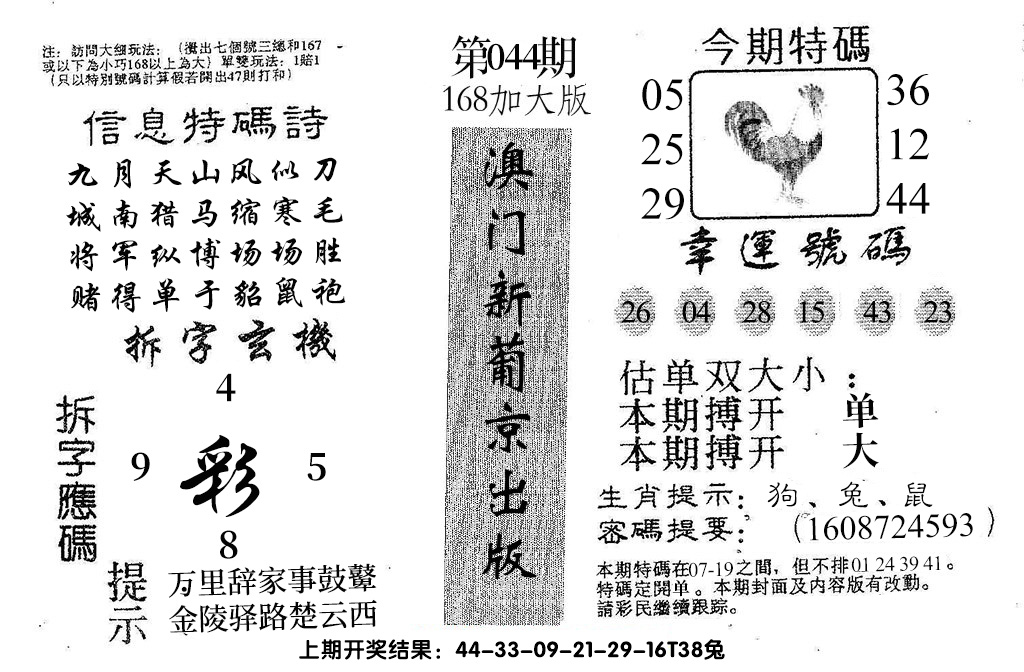 注：訪問大细玩法：（攪出七個號三總和167
或以下為小巧168以上為大）單雙玩法：1賠1
（只以特別號碼計算假若開出47則打和）
信息特碼詩
九月天山风似刀
城南猎马缩寒毛
将军纵博场场胜
赌得单于貂鼠袍
拆字玄機
拆字應碼
4
9 彩 5
8
提示
万里辞家事鼓鼙
金陵驿路楚云西
第044期
168加大版
澳门新葡京出版
今期特碼
05 36
25 12
29 44
幸運號碼
26 04 28 15 43 23
估单双大小：
本期搏开 单
本期搏开 大
生肖提示：狗、兔、鼠
密碼提要：（1608724593）
本期特碼在07-19之間，但不排01 24 39 41。
特碼定開單。本期封面及内容版有改動。
請彩民繼續跟踪。
上期开奖结果：44-33-09-21-29-16T38兔